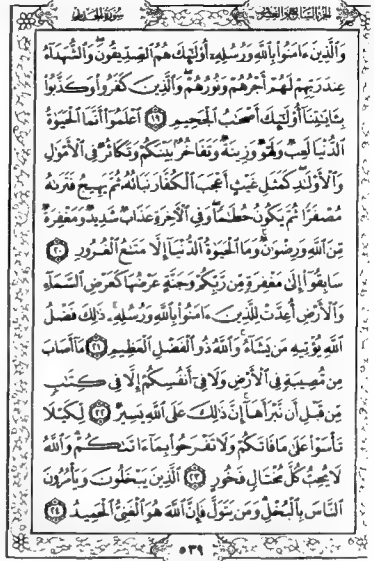 الجزء السابع والعشرون سورة الحديد
وَٱلَّذِينَ ءَامَنُوا۟ بِٱللَّهِ وَرُسُلِهِۦٓ أُو۟لَٰٓئِكَ هُمُ ٱلصِّدِّيقُونَ ۖ وَٱلشُّهَدَآءُ
عِندَ رَبِّهِمْ لَهُمْ أَجْرُهُمْ وَنُورُهُمْ ۖ وَٱلَّذِينَ كَفَرُوا۟ وَكَذَّبُوا۟
بِـَٔايَٰتِنَآ أُو۟لَٰٓئِكَ أَصْحَٰبُ ٱلْجَحِيمِ ١٩ ٱعْلَمُوٓا۟ أَنَّمَا ٱلْحَيَوٰةُ
ٱلدُّنْيَا لَعِبٌ وَلَهْوٌ وَزِينَةٌ وَتَفَاخُرٌۢ بَيْنَكُمْ وَتَكَاثُرٌ فِى ٱلْأَمْوَٰلِ
وَٱلْأَوْلَٰدِ ۖ كَمَثَلِ غَيْثٍ أَعْجَبَ ٱلْكُفَّارَ نَبَاتُهُۥ ثُمَّ يَهِيجُ فَتَرَىٰهُ
مُصْفَرًّا ثُمَّ يَكُونُ حُطَٰمًا ۖ وَفِى ٱلْءَاخِرَةِ عَذَابٌ شَدِيدٌ وَمَغْفِرَةٌ
مِّنَ ٱللَّهِ وَرِضْوَٰنٌ ۚ وَمَا ٱلْحَيَوٰةُ ٱلدُّنْيَآ إِلَّا مَتَٰعُ ٱلْغُرُورِ ٢٠
سَابِقُوٓا۟ إِلَىٰ مَغْفِرَةٍ مِّن رَّبِّكُمْ وَجَنَّةٍ عَرْضُهَا كَعَرْضِ ٱلسَّمَآءِ
وَٱلْأَرْضِ أُعِدَّتْ لِلَّذِينَ ءَامَنُوا۟ بِٱللَّهِ وَرُسُلِهِۦ ۚ ذَٰلِكَ فَضْلُ
ٱللَّهِ يُؤْتِيهِ مَن يَشَآءُ ۚ وَٱللَّهُ ذُو ٱلْفَضْلِ ٱلْعَظِيمِ ٢١ مَآ أَصَابَ
مِن مُّصِيبَةٍ فِى ٱلْأَرْضِ وَلَا فِىٓ أَنفُسِكُمْ إِلَّا فِى كِتَٰبٍ
مِّن قَبْلِ أَن نَّبْرَأَهَآ ۚ إِنَّ ذَٰلِكَ عَلَى ٱللَّهِ يَسِيرٌ ٢٢ لِّكَيْلَا
تَأْسَوْا۟ عَلَىٰ مَا فَاتَكُمْ وَلَا تَفْرَحُوا۟ بِمَآ ءَاتَىٰكُمْ ۗ وَٱللَّهُ
لَا يُحِبُّ كُلَّ مُخْتَالٍ فَخُورٍ ٢٣ ٱلَّذِينَ يَبْخَلُونَ وَيَأْمُرُونَ
ٱلنَّاسَ بِٱلْبُخْلِ ۗ وَمَن يَتَوَلَّ فَإِنَّ ٱللَّهَ هُوَ ٱلْغَنِىُّ ٱلْحَمِيدُ ٢٤
٥٣٩